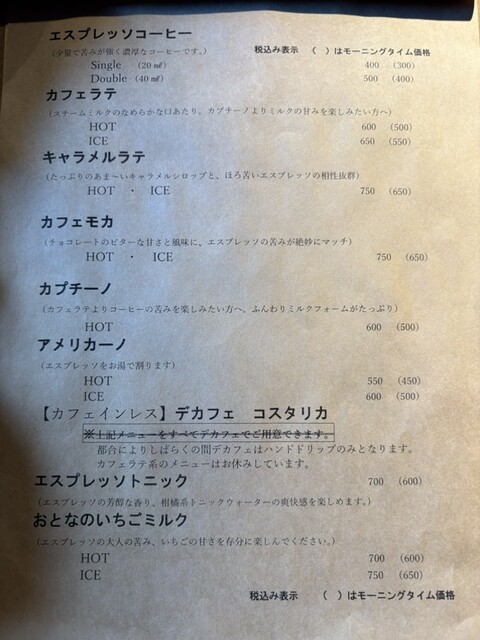 エスプレッソコーヒー
（少量で苦みが強く濃厚なコーヒーです。） 税込み表示 （ ）はモーニングタイム価格
Single （20㎖） 400 （300）
Double（40㎖） 500 （400）
カフェラテ
（スチームミルクのなめらかな口あたり。カプチーノよりミルクの甘みを楽しみたい方へ）
HOT 600 （500）
ICE 650 （550）
キャラメルラテ
（たっぷりのあま～いキャラメルシロップと、ほろ苦いエスプレッソの相性抜群）
HOT ・ ICE 750 （650）
カフェモカ
（チョコレートのビターな甘さと風味に、エスプレッソの苦みが絶妙にマッチ）
HOT ・ ICE 750 （650）
カプチーノ
（カフェラテよりコーヒーの苦みを楽しみたい方へ。ふんわりミルクフォームがたっぷり）
HOT 600 （500）
アメリカーノ
（エスプレッソをお湯で割ります）
HOT 550 （450）
ICE 600 （500）
【カフェインレス】デカフェ コスタリカ
※上記メニューをすべてデカフェでご用意できます。
都合によりしばらくの間デカフェはハンドドリップのみとなります。
カフェラテ系のメニューはお休みしています。
エスプレッソトニック 700 （600）
（エスプレッソの芳醇な香り、柑橘系トニックウォーターの爽快感を楽しめます。）
おとなのいちごミルク
（エスプレッソの大人の苦み、いちごの甘さを存分に楽しんでください。）
HOT 700 （600）
ICE 750 （650）
税込み表示 （ ）はモーニングタイム価格